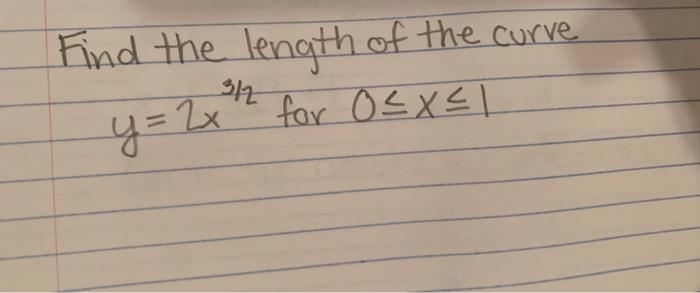 Find the length of the curve
y = 2x^3/2 for 0 ≤ x ≤ 1